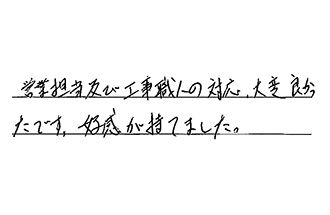 営業担当及び工事職人の対応、大変良か
たです。好感が持てました。